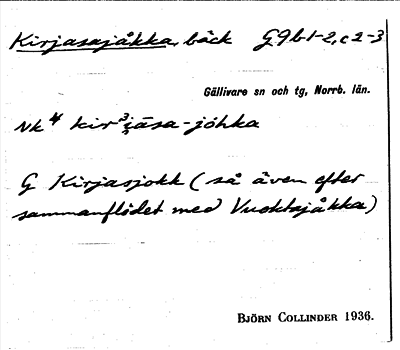 Kirjasajåkka, bäck G9b1-2, c2-3
Gällivare sn och tg, Norrb. län.
Nk⁴ kir³jāsa-jóhka
G Kirjasjokk (så även efter
sammanflödet med Vuoktajåkka)
BJÖRN COLLINDER 1936.